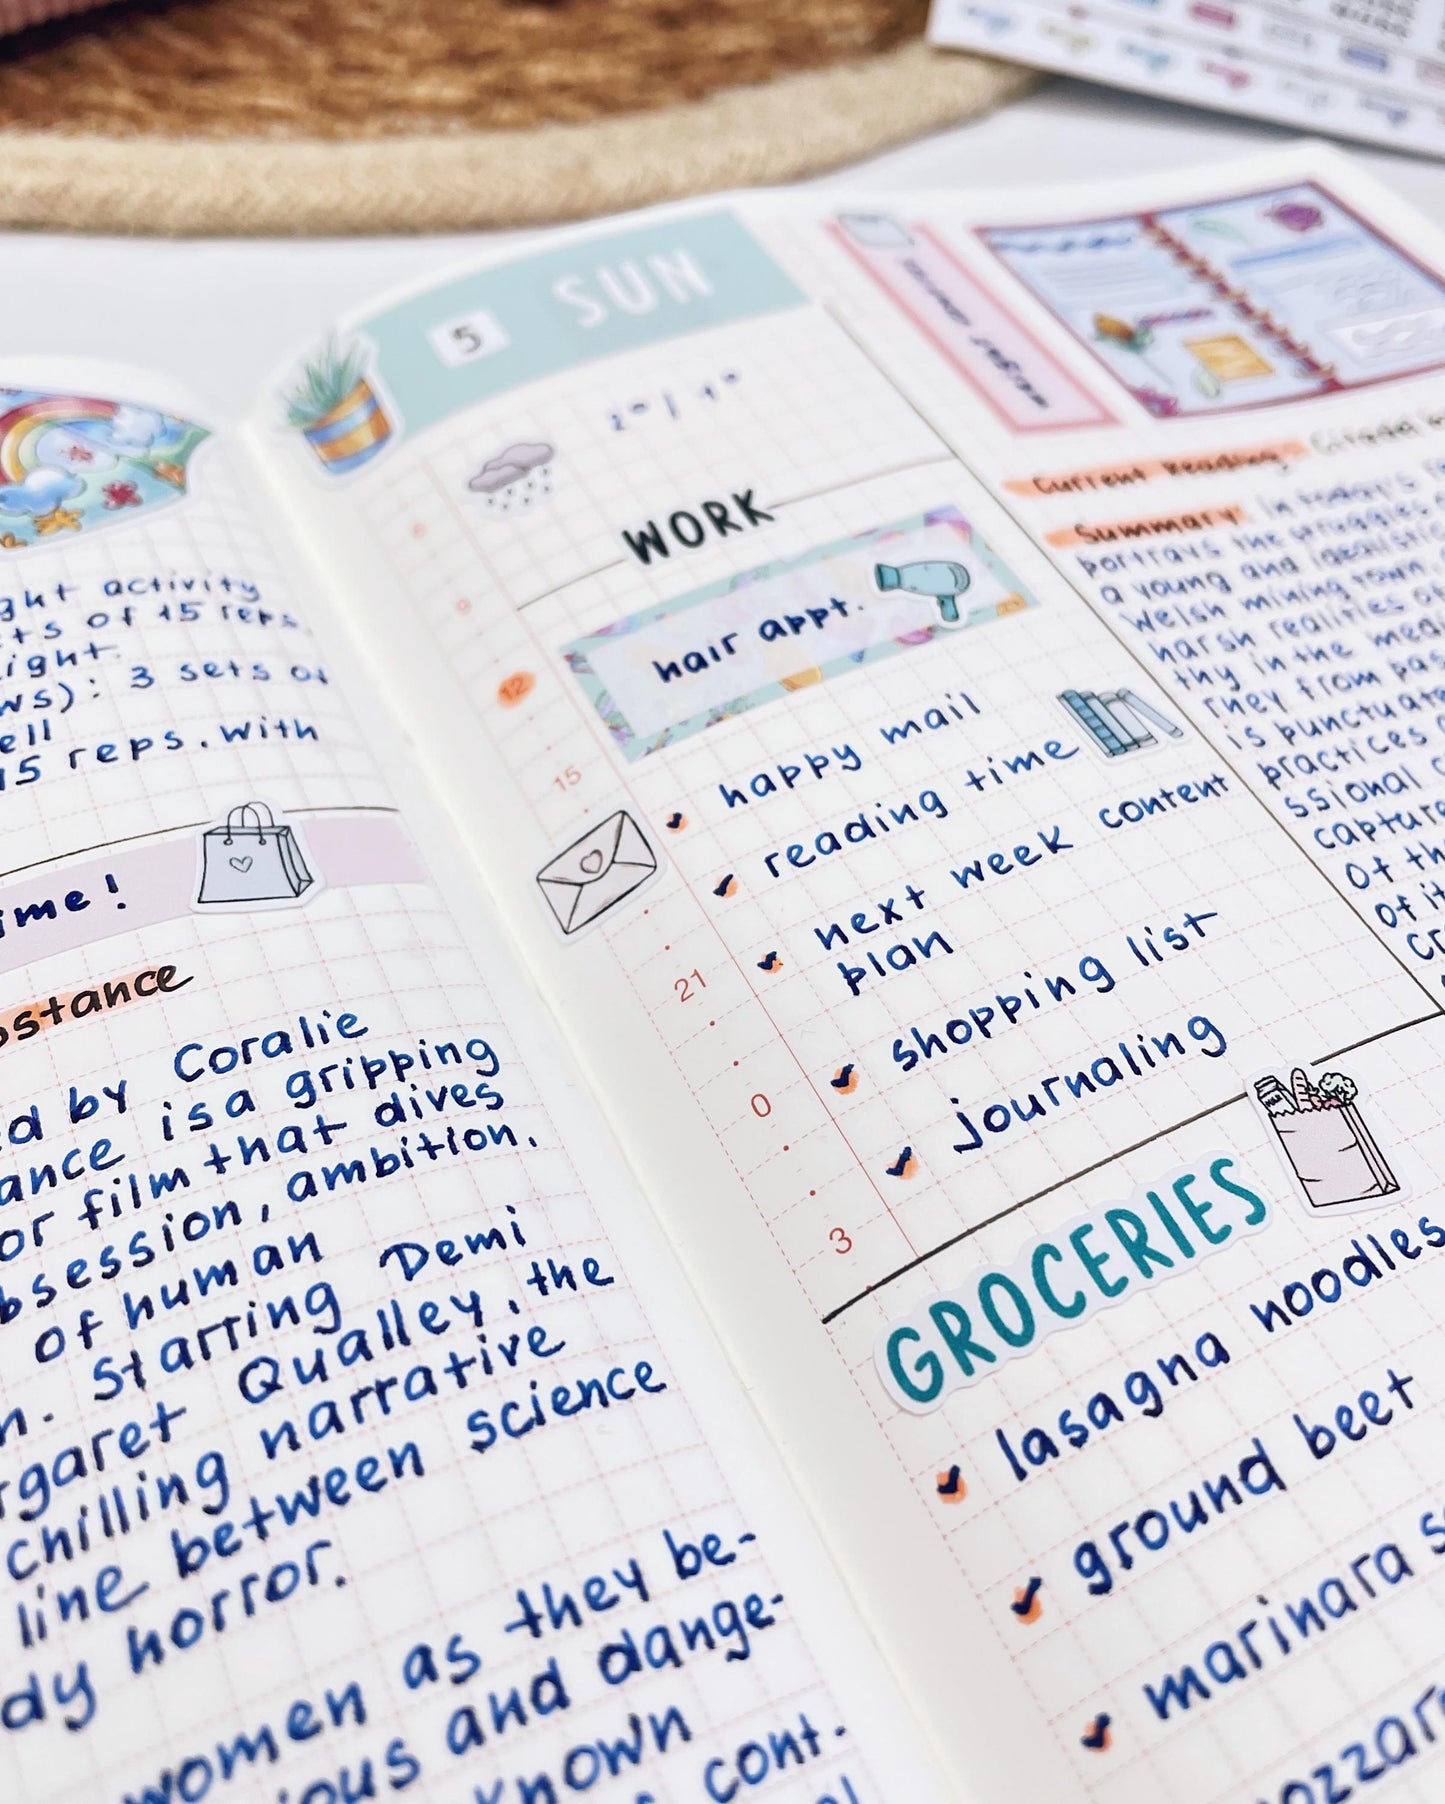 ght activity
ts of 15 reps.
ight.
ws): 3 sets of
ell
15 reps. with
ime!
bstance
ed by Coralie
ance is a gripping
or film that dives
bsession, ambition,
of human
n. Starring Demi
rgaret Qualley, the
chilling narrative
line between science
dy horror.
women as they be-
ious and dange-
known
cont.
5 SUN
WORK
hair appt.
12
15
21
0
3
happy mail
reading time
next week content
plan
shopping list
journaling
GROCERIES
lasagna noodles
ground beef
marinara s
ozzar
Current Reading: Citadel
Summary: In today's
portrays the struggles
a young and idealistic
Welsh mining town.
harsh realities
thy in the medi
rney from pas
is punctuate
practices
ssional
capture
of th
of it
cr